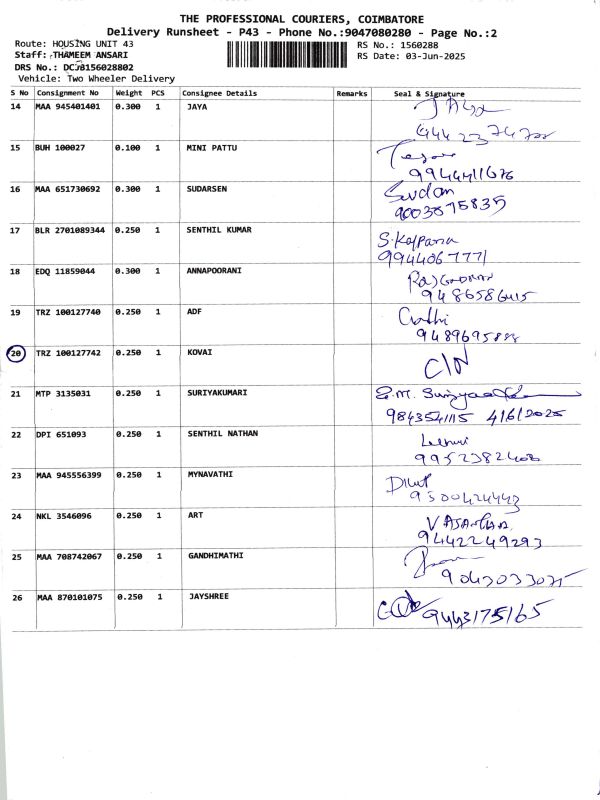 THE PROFESSIONAL COURIERS, COIMBATORE
Delivery Runsheet - P43 - Phone No.:9047080280 - Page No.:2
Route: HOUSING UNIT 43
RS No.: 1560288
Staff: THAMEEM ANSARI
RS Date: 03-Jun-2025
DRS No.: DCJ8156028802
Vehicle: Two Wheeler Delivery
S No Consignment No Weight PCS Consignee Details Remarks Seal & Signature
14 MAA 945401401 0.300 1 JAYA
15 BUH 100027 0.100 1 MINI PATTU
9944411676
16 MAA 651730692 0.300 1 SUDARSEN Sudan
9003875835
17 BLR 2701089344 0.250 1 SENTHIL KUMAR S.Kalpana
9944067771
18 EDQ 11859044 0.300 1 ANNAPOORANI
9486586415
19 TRZ 100127740 0.250 1 ADF
20 TRZ 100127742 0.250 1 KOVAI C/N
21 MTP 3135031 0.250 1 SURIYAKUMARI
9843541115 4/6/2025
22 DPI 651093 0.250 1 SENTHIL NATHAN
9952382408
23 MAA 945556399 0.250 1 MYNAVATHI
9500424443
24 NKL 3546096 0.250 1 ART
9442249293
25 MAA 708742067 0.250 1 GANDHIMATHI
26 MAA 870101075 0.250 1 JAYSHREE
9443175165